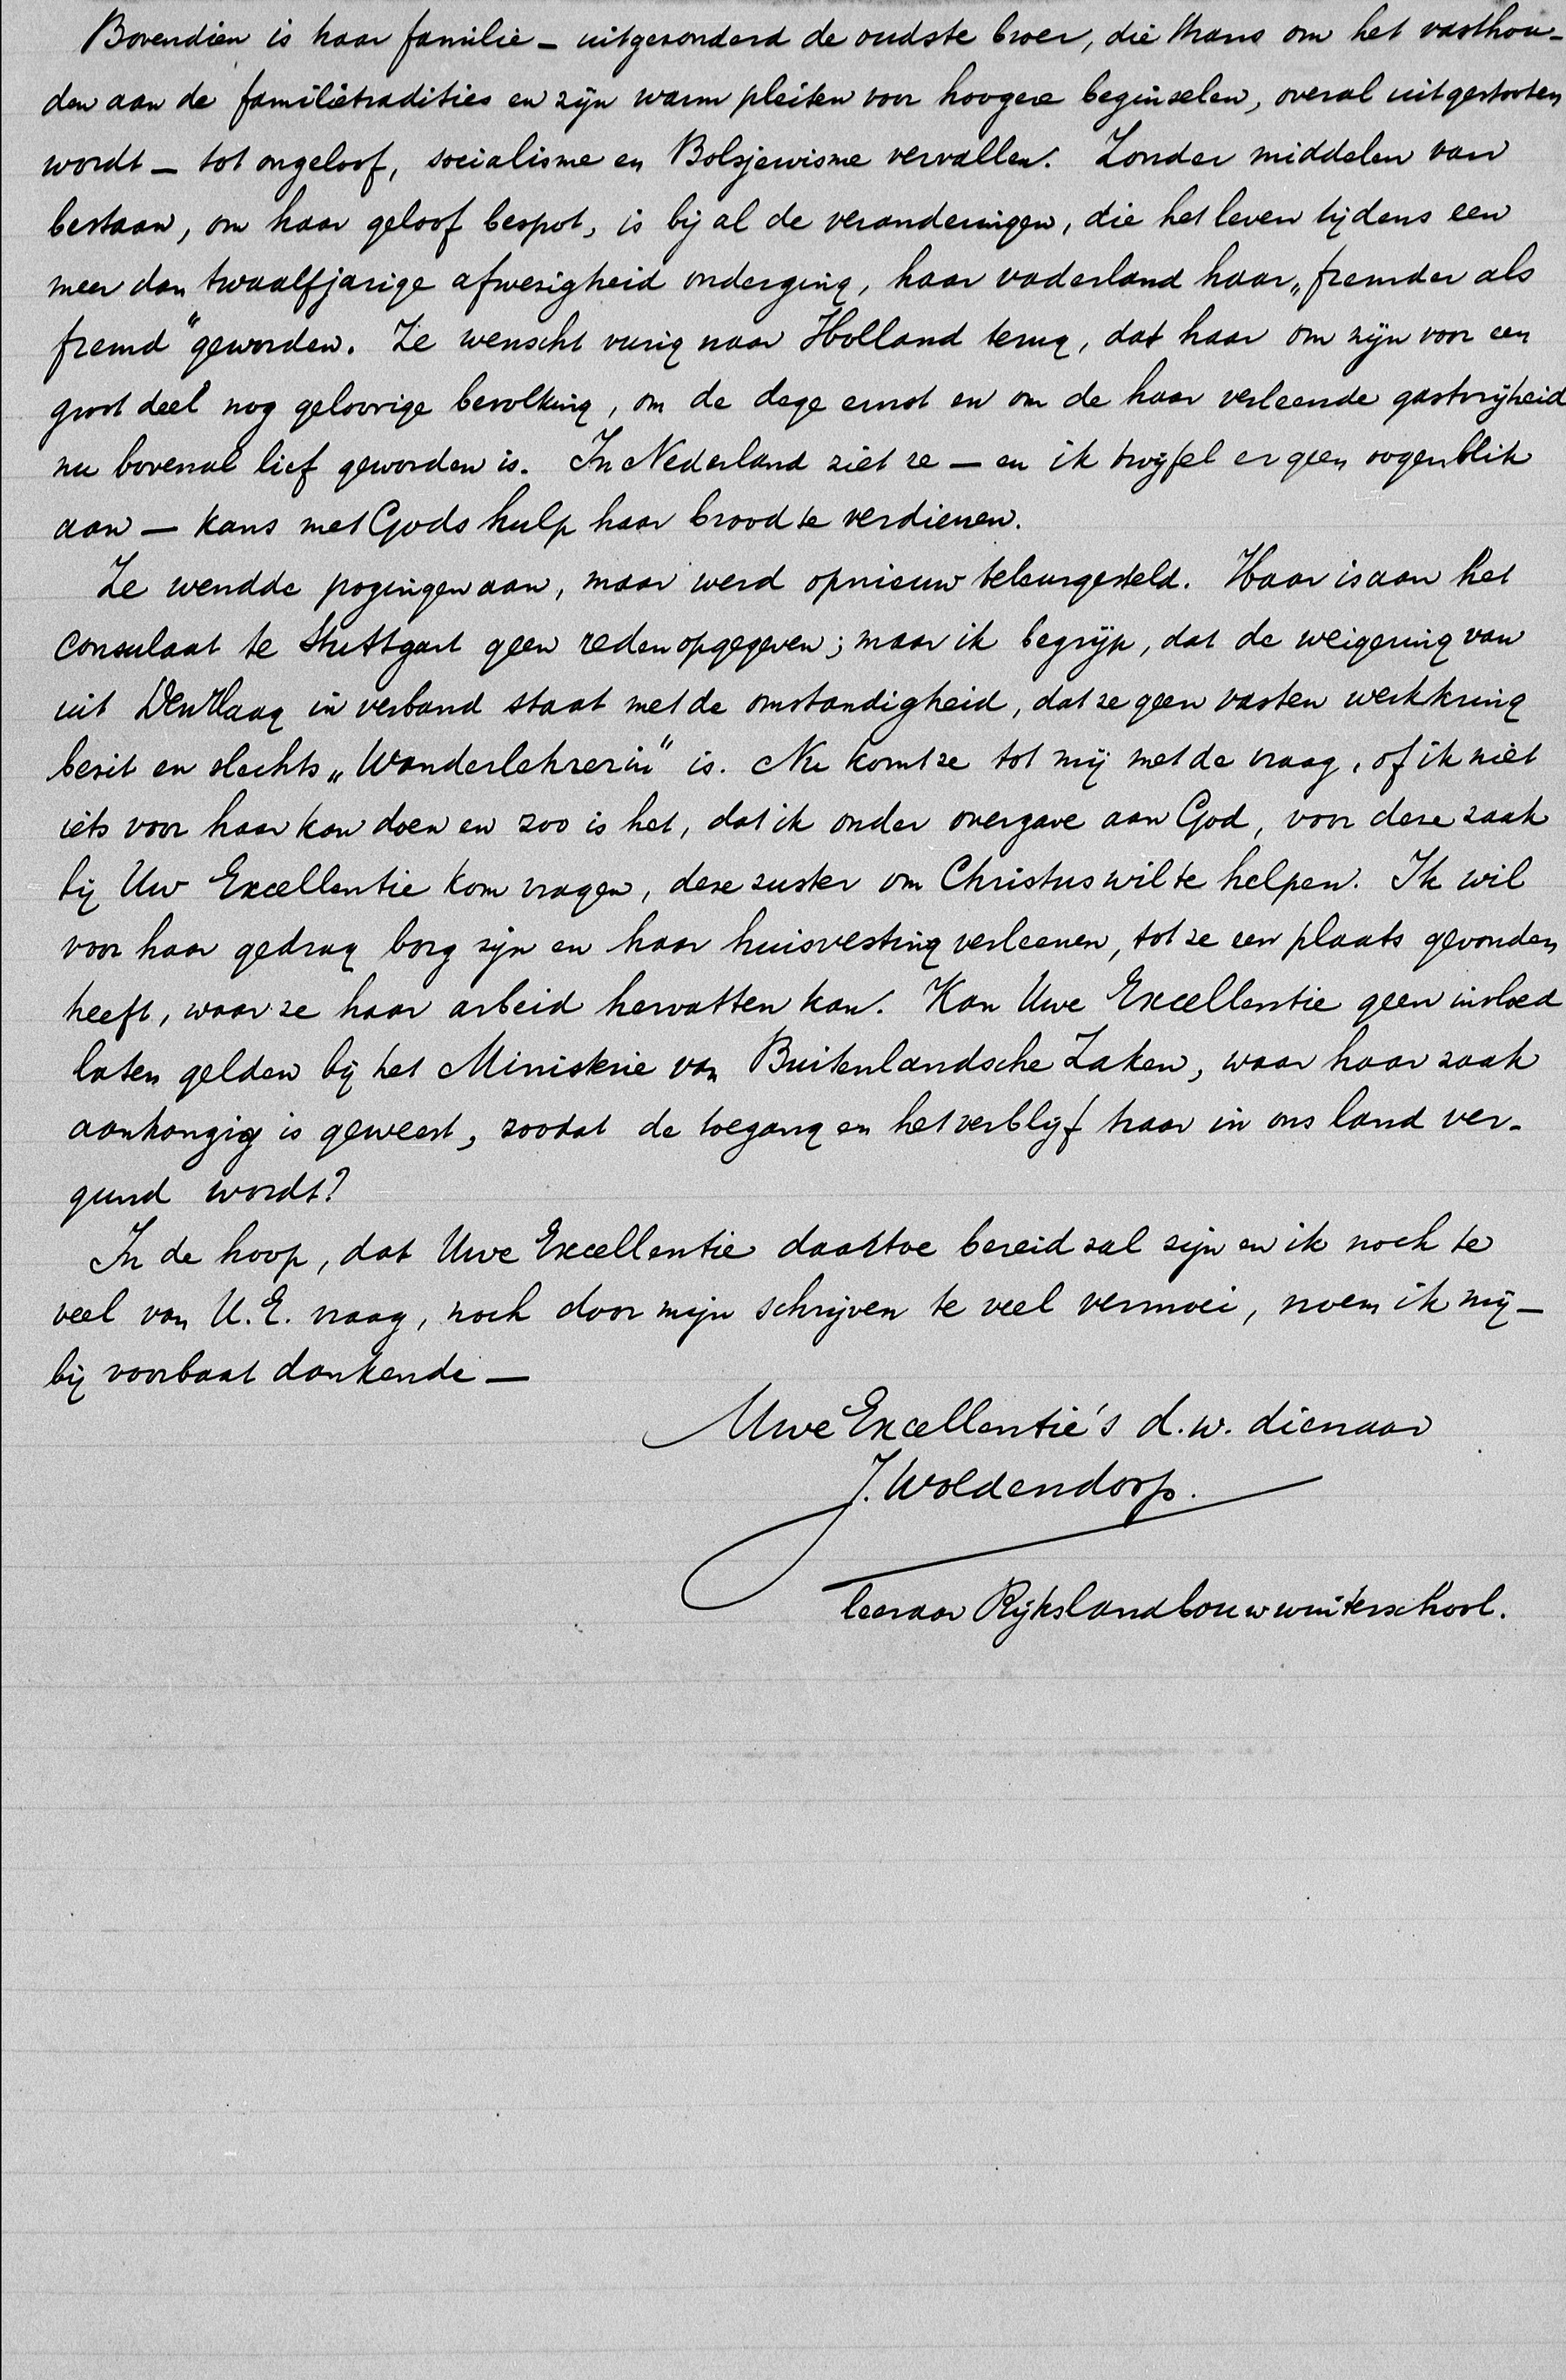 Bovendien is haar familie – uitgezonderd de oudste broer, die thans om het vasthou-
den aan de familietradities en zijn warm pleiten voor hoogere beginselen, overal uitgestooten
wordt – tot ongeloof, socialisme en Bolsjewisme vervallen. Zonder middelen van
bestaan, om haar geloof bespot, is bij al de veranderingen, die het leven tijdens een
meer dan twaalfjarige afwezigheid onderging, haar vaderland haar „fremder als
fremd" geworden. Ze wenscht vurig naar Holland terug, dat haar om zijn voor een
groot deel nog geloovige bevolking, om de dege ernst en om de haar verleende gastvrijheid
nu bovenal lief geworden is. In Nederland ziet ze – en ik twijfel er geen oogenblik
aan – kans met Gods hulp haar brood te verdienen.
Ze wendde pogingen aan, maar werd opnieuw teleurgesteld. Haar is aan het
consulaat te Stuttgart geen reden opgegeven; maar ik begrijp, dat de weigering van
uit Den Haag in verband staat met de omstandigheid, dat ze geen vasten werkkring
bezit en slechts „Wanderlehrerin" is. Nu komt ze tot mij met de vraag, of ik niet
iets voor haar kan doen en zoo is het, dat ik onder overgave aan God, voor deze zaak
bij Uw Excellentie kom vragen, deze zuster om Christus wil te helpen. Ik wil
voor haar gedrag borg zijn en haar huisvesting verleenen, tot ze een plaats gevonden
heeft, waar ze haar arbeid hervatten kan. Kan Uwe Excellentie geen invloed
laten gelden bij het Ministerie van Buitenlandsche Zaken, waar haar zaak
aanhangig is geweest, zoodat de toegang en het verblijf haar in ons land ver-
gund wordt?
In de hoop, dat Uwe Excellentie daartoe bereid zal zijn en ik noch te
veel van U.E. vraag, noch door mijn schrijven te veel vermoei, noem ik mij –
bij voorbaat dankende –
Uwe Excellentie's d.w. dienaar
J. Woldendorp.
leeraar Rijkslandbouwwinterschool.